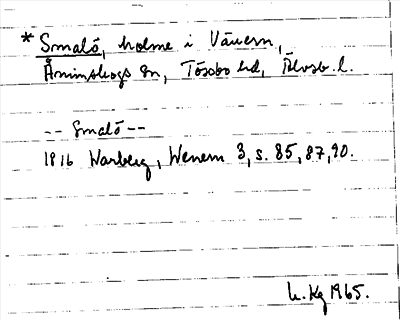 * Smalö, holme i Vänern,
Åminskogs sn, Tössbo hd, Älvsb. l.
-- Smalö --
1816 Warberg, Wenern 3, s. 85, 87, 90.
1965.